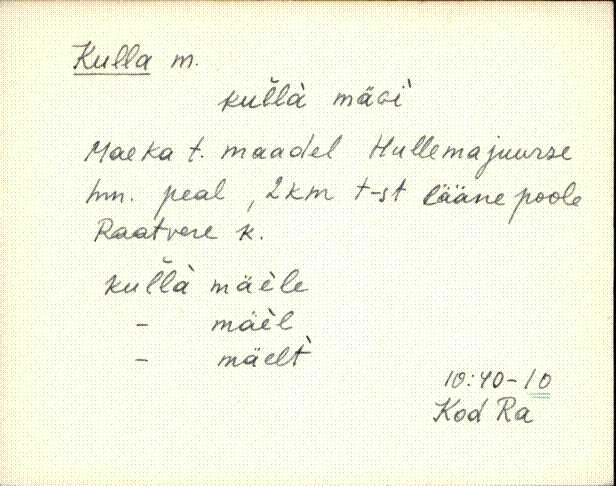 Kulla m.
kul̆l̆à mäǝì
Maeka t. maadel Hullemajuurse
hn. peal, 2km t-st lääne poole
Raatvere k.
kul̆l̆à mäèle
- mäèl
- mäelt̀
10:40-10
Kod Ra